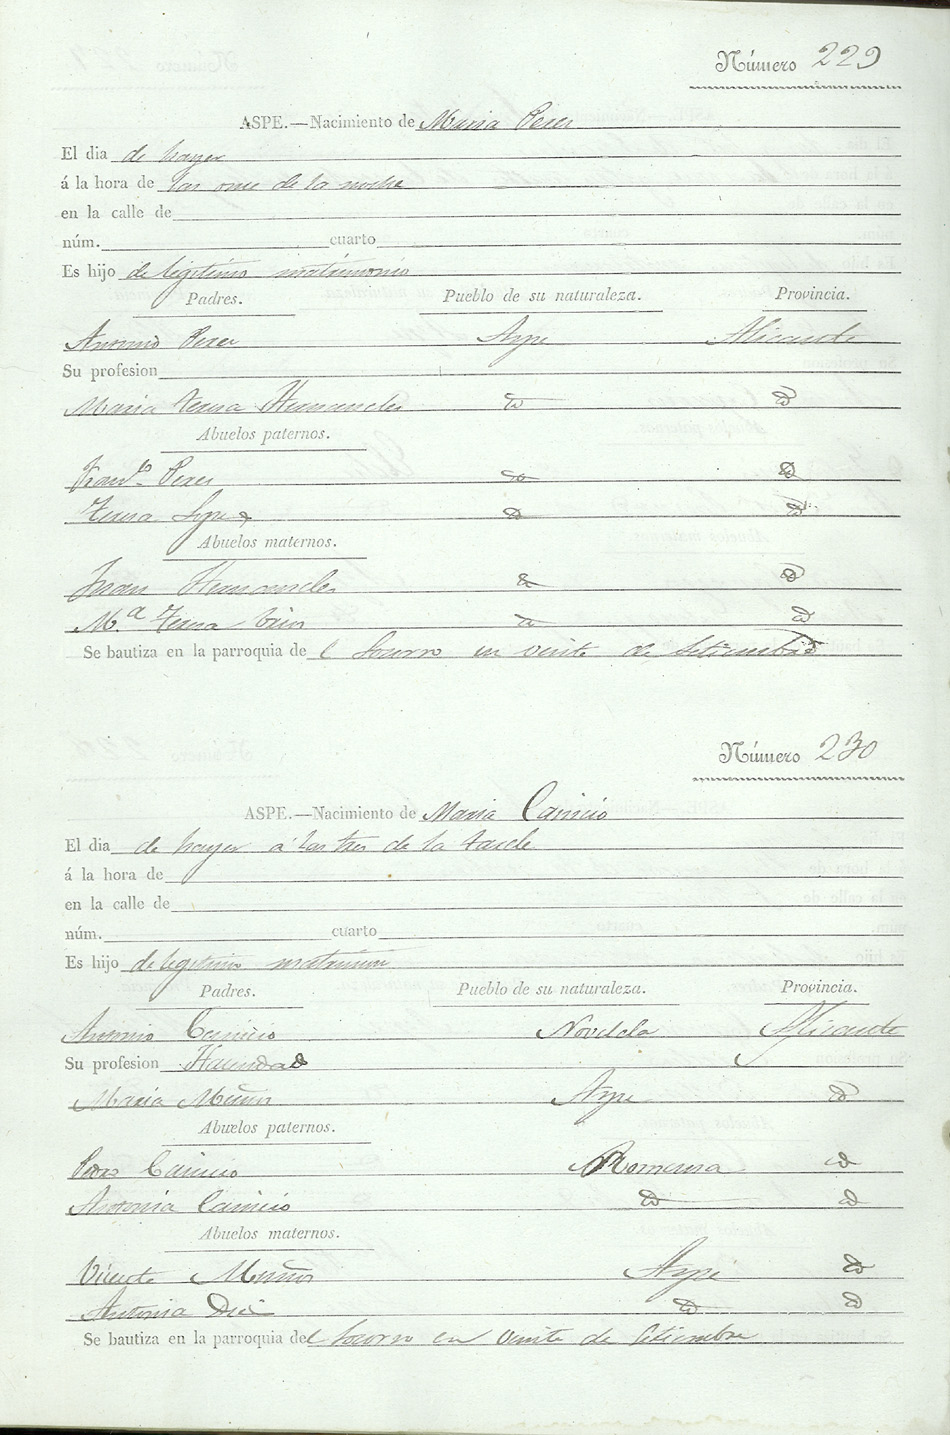 Número 229
ASPE.—Nacimiento de Maria Perez
El dia de hayer
á la hora de las once de la noche
en la calle de
núm. cuarto
Es hijo de legitimo matrimonio
Padres. Pueblo de su naturaleza. Provincia.
Antonio Perez Aspe Alicante
Su profesion
Maria Teresa Hernandez id id
Abuelos paternos.
Franco Perez id id
Teresa id id
Abuelos maternos.
Juan Hernandez id id
M.a Teresa id id
Se bautiza en la parroquia de l Socorro en veinte de Setiembre
Número 230
ASPE.—Nacimiento de Maria Cañicio
El dia de hayer á las tres de la tarde
á la hora de
en la calle de
núm. cuarto
Es hijo de legitimo matrimonio
Padres. Pueblo de su naturaleza. Provincia.
Antonio Cañicio Novelda Alicante
Su profesion
Maria Muñoz Aspe id
Abuelos paternos.
Pedro Cañicio Romana id
Antonia Cañicio id id
Abuelos maternos.
Vicente Muñoz Aspe id
Antonia id id
Se bautiza en la parroquia del Socorro en veinte de Setiembre